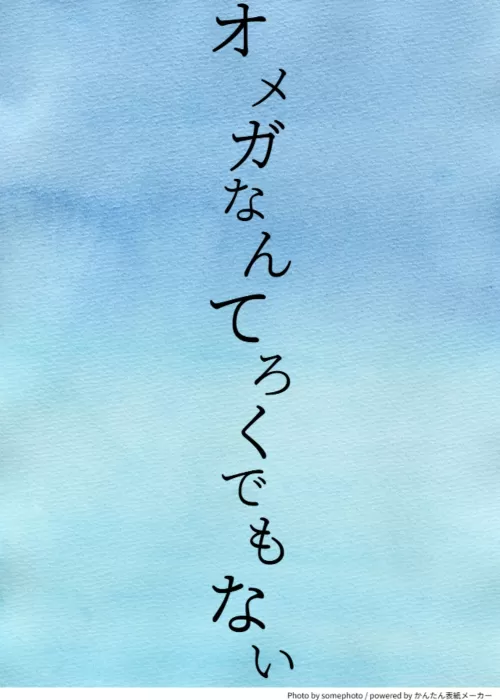 オメガなんてろくでもない
Photo by somephoto / powered by かんたん表紙メーカー